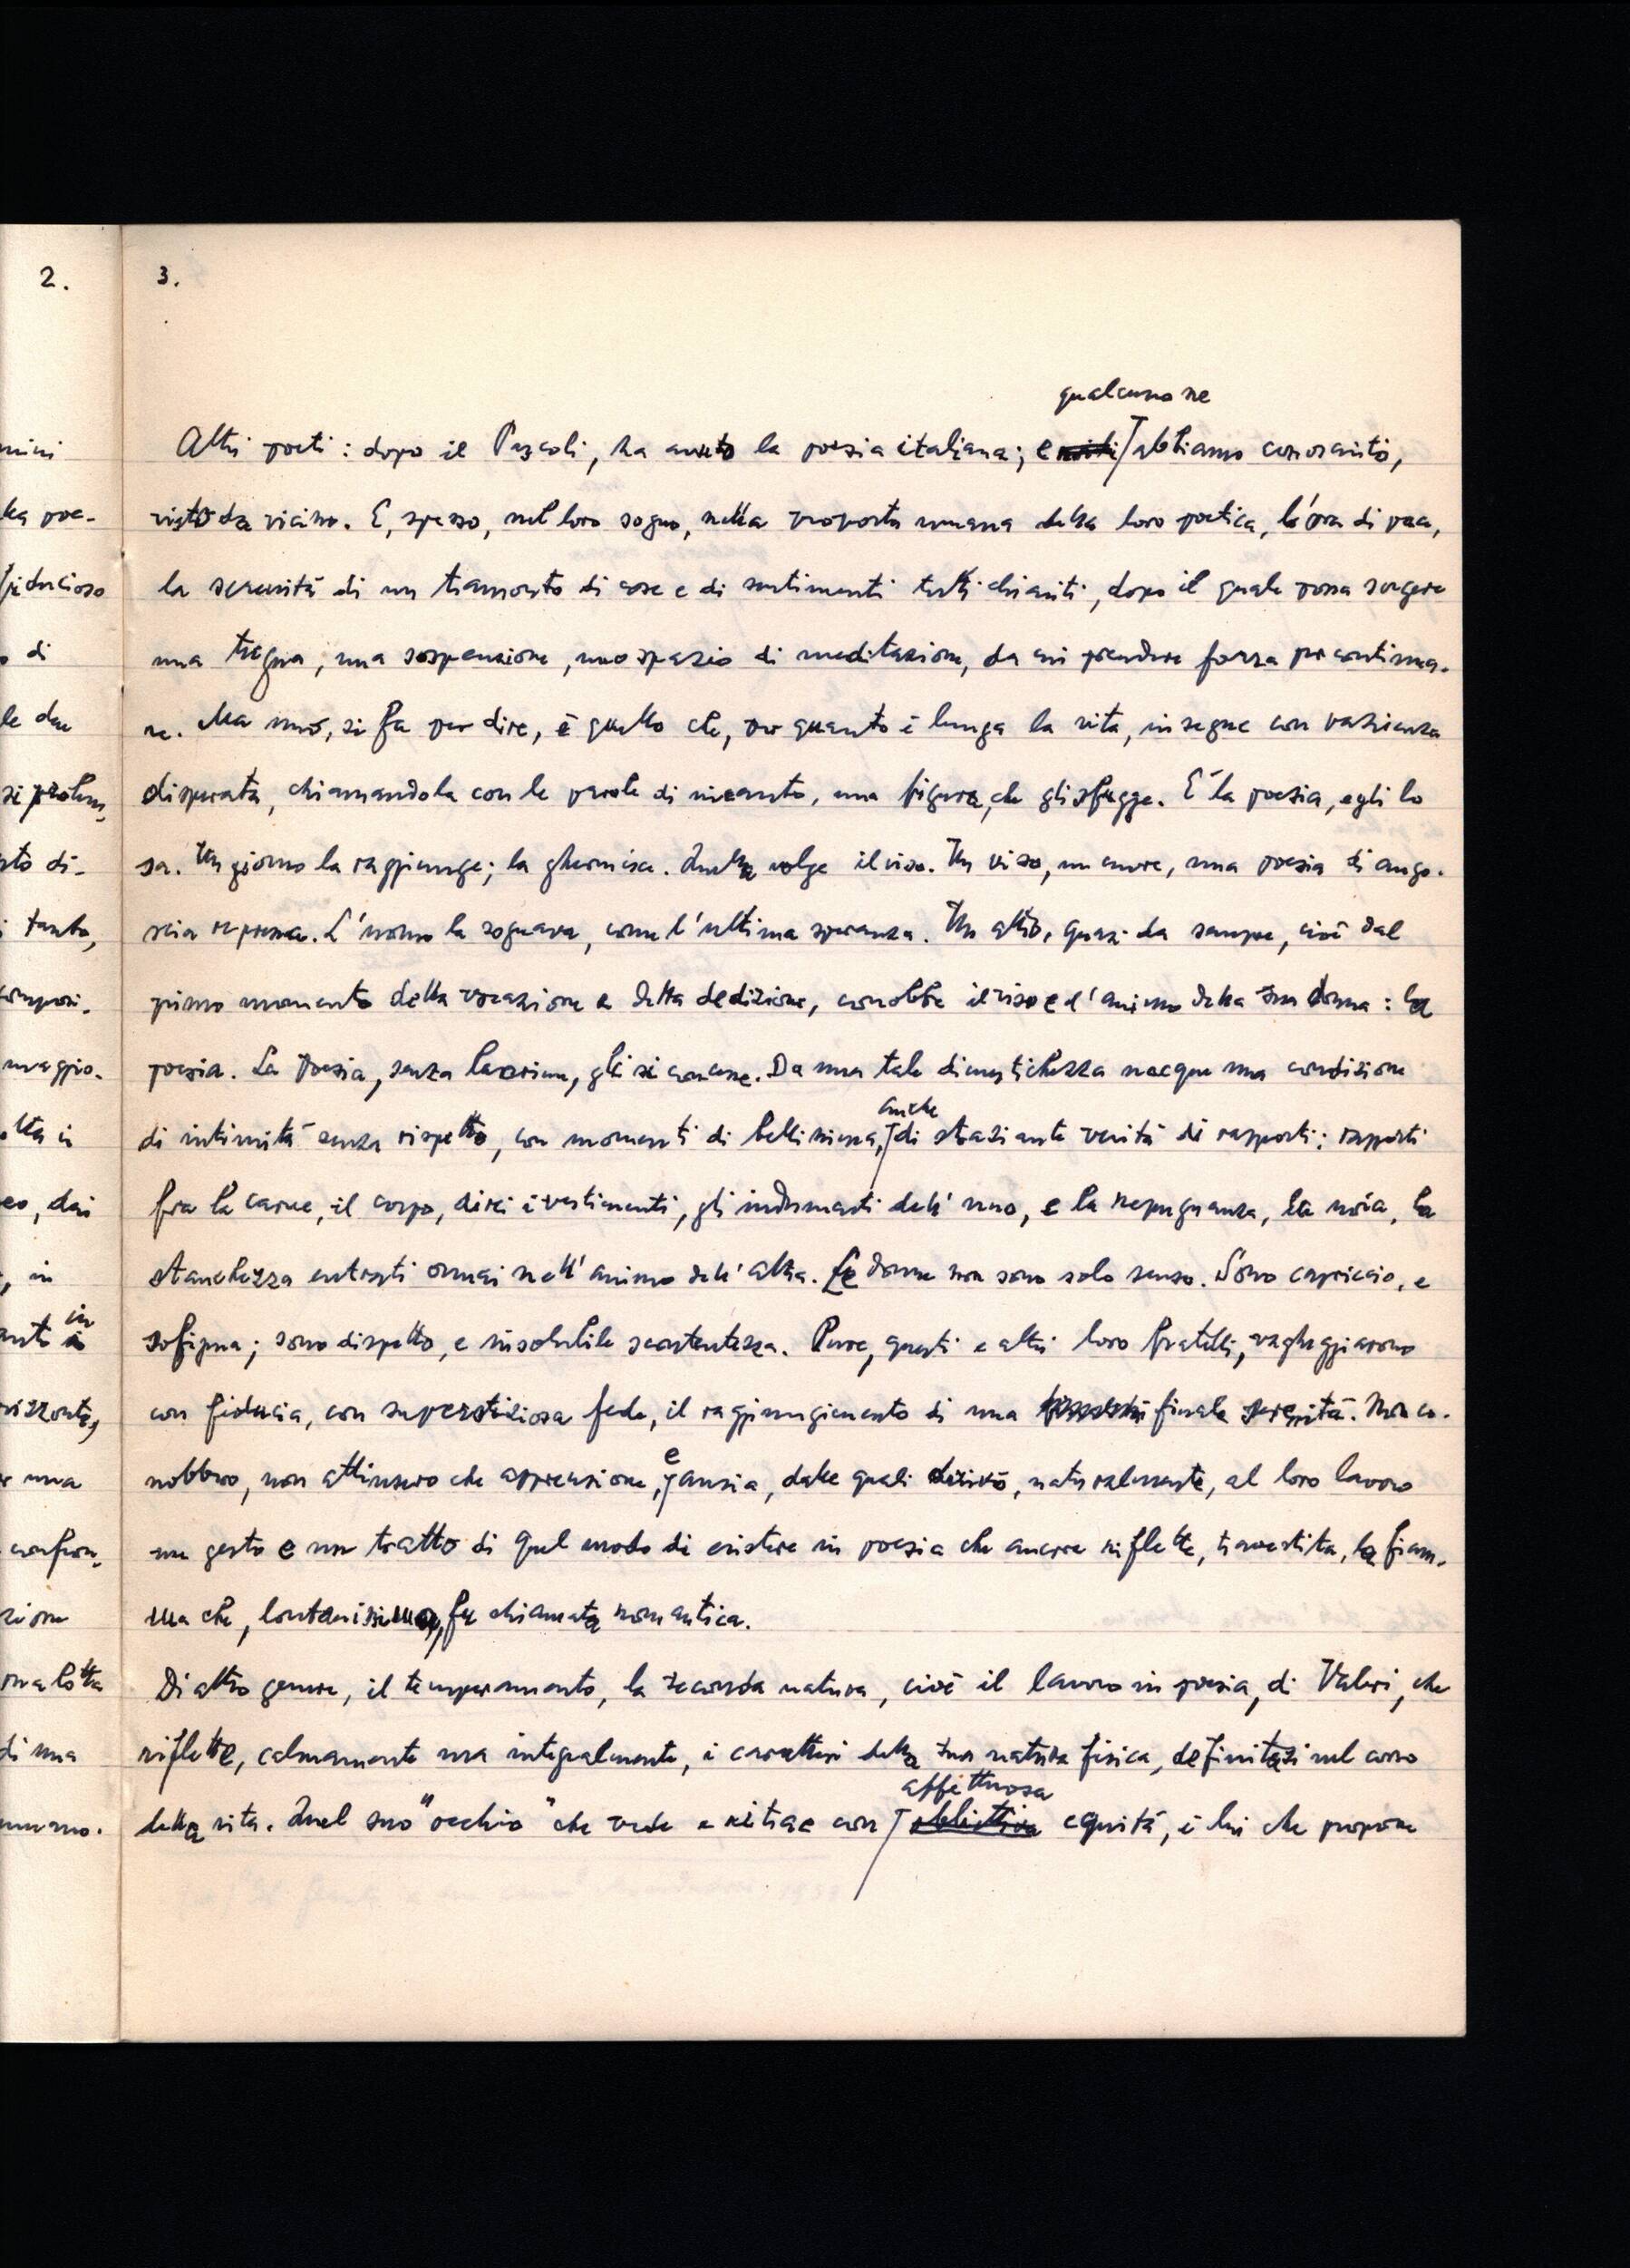 2.
mini
fiducioso
di
le due
to di-
tanto,
composi-
maggio-
in
eo, dai
, in
in
orizzonte,
una
zione
di una
umano.
3.
qualcuno ne
Altri poeti: dopo il Pascoli, ha avuto la poesia italiana; e abbiamo conosciuto,
visto da vicino. E, spesso, nel loro sogno, nella proposta umana della loro poetica, l'ora di pace,
la serenità di un tramonto di cose e di sentimenti tutti chiariti, dopo il quale possa sorgere
una tregua, una sospensione, uno spazio di meditazione, da cui prendere forza per continua-
re. Ma uno, si fa per dire, è quello che, per quanto è lunga la vita, insegue con pazienza
disperata, chiamandola con le parole di incanto, una figura che gli sfugge. È la poesia, egli lo
sa. Un giorno la raggiunge; la ghermisce. Quella volge il viso. Un viso, un cuore, una poesia di ango-
scia repressa. L'uomo la sognava, come l'ultima speranza. Un altro, quasi da sempre, cioè dal
primo momento della vocazione e della dedizione, conobbe il viso e l'animo della sua donna: la
poesia. La poesia, senza lacrime, gli si concesse. Da una tale dimestichezza nacque una condizione
anche
di intimità senza rispetto, con momenti di bellissima, di straziante verità di rapporti: rapporti
fra la carne, il corpo, direi i vestimenti, gli indumenti dell'uno, e la repugnanza, la noia, la
stanchezza entrati ormai nell'animo dell'altra. Le donne non sono solo senso. Sono capriccio, e
sofisma; sono dispetto, e insolubile scontentezza. Pure, questi e altri loro fratelli, vagheggiarono
con fiducia, con superstiziosa fede, il raggiungimento di una finale serenità. Non co-
e
nobbero, non attinsero che apprensione, ansia, dalle quali derivò, naturalmente, al loro lavoro
un gesto e un tratto di quel modo di esistere in poesia che ancora riflette, travestita, la fiam-
ma che, lontanissima, fu chiamata romantica.
Di altro genere, il temperamento, la seconda natura, cioè il lavoro in poesia, di Valeri, che
riflette, calmamente ma integralmente, i caratteri della sua natura fisica, definitasi nel corso
affettuosa
della vita. Quel suo "occhio" che vede e ritrae con obiettiva equità, è lui che propone